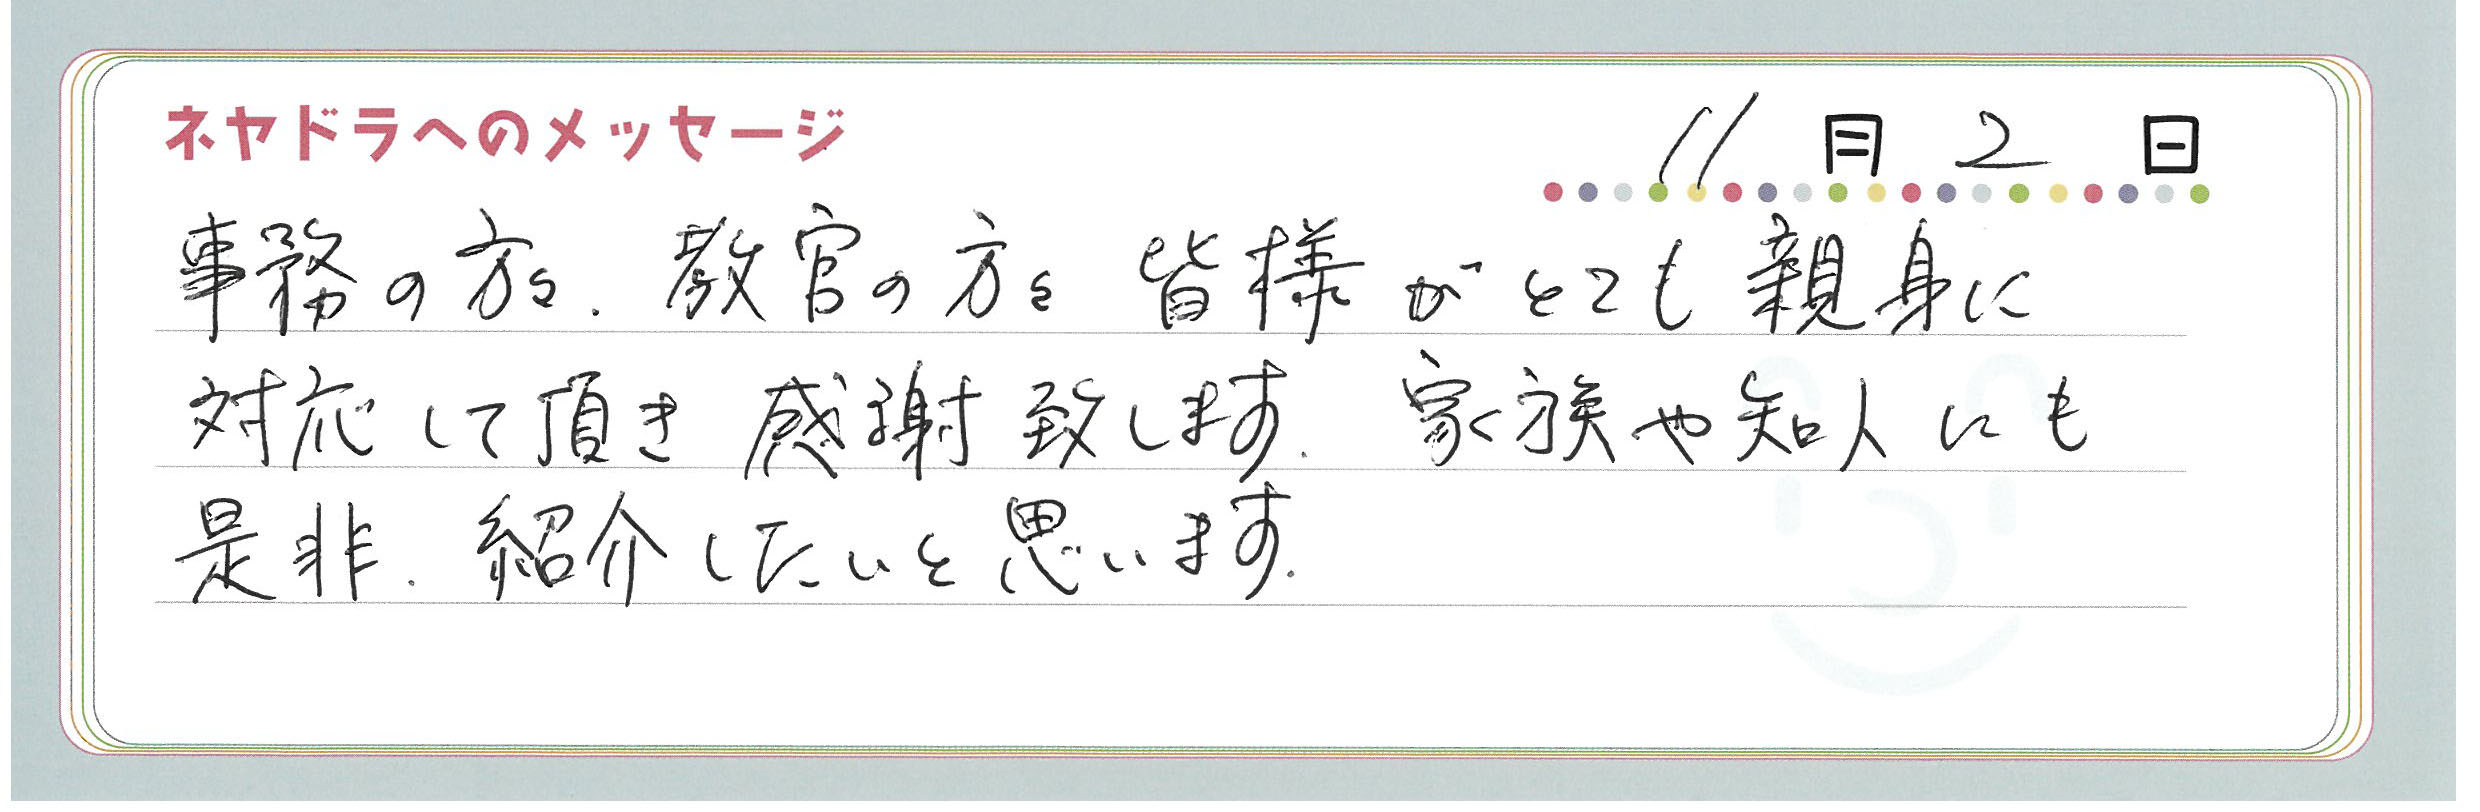 ネヤドラへのメッセージ
11月2日
事務の方々、教官の方々 皆様がとても親身に
対応して頂き 感謝致します。家族や知人にも
是非、紹介したいと思います。